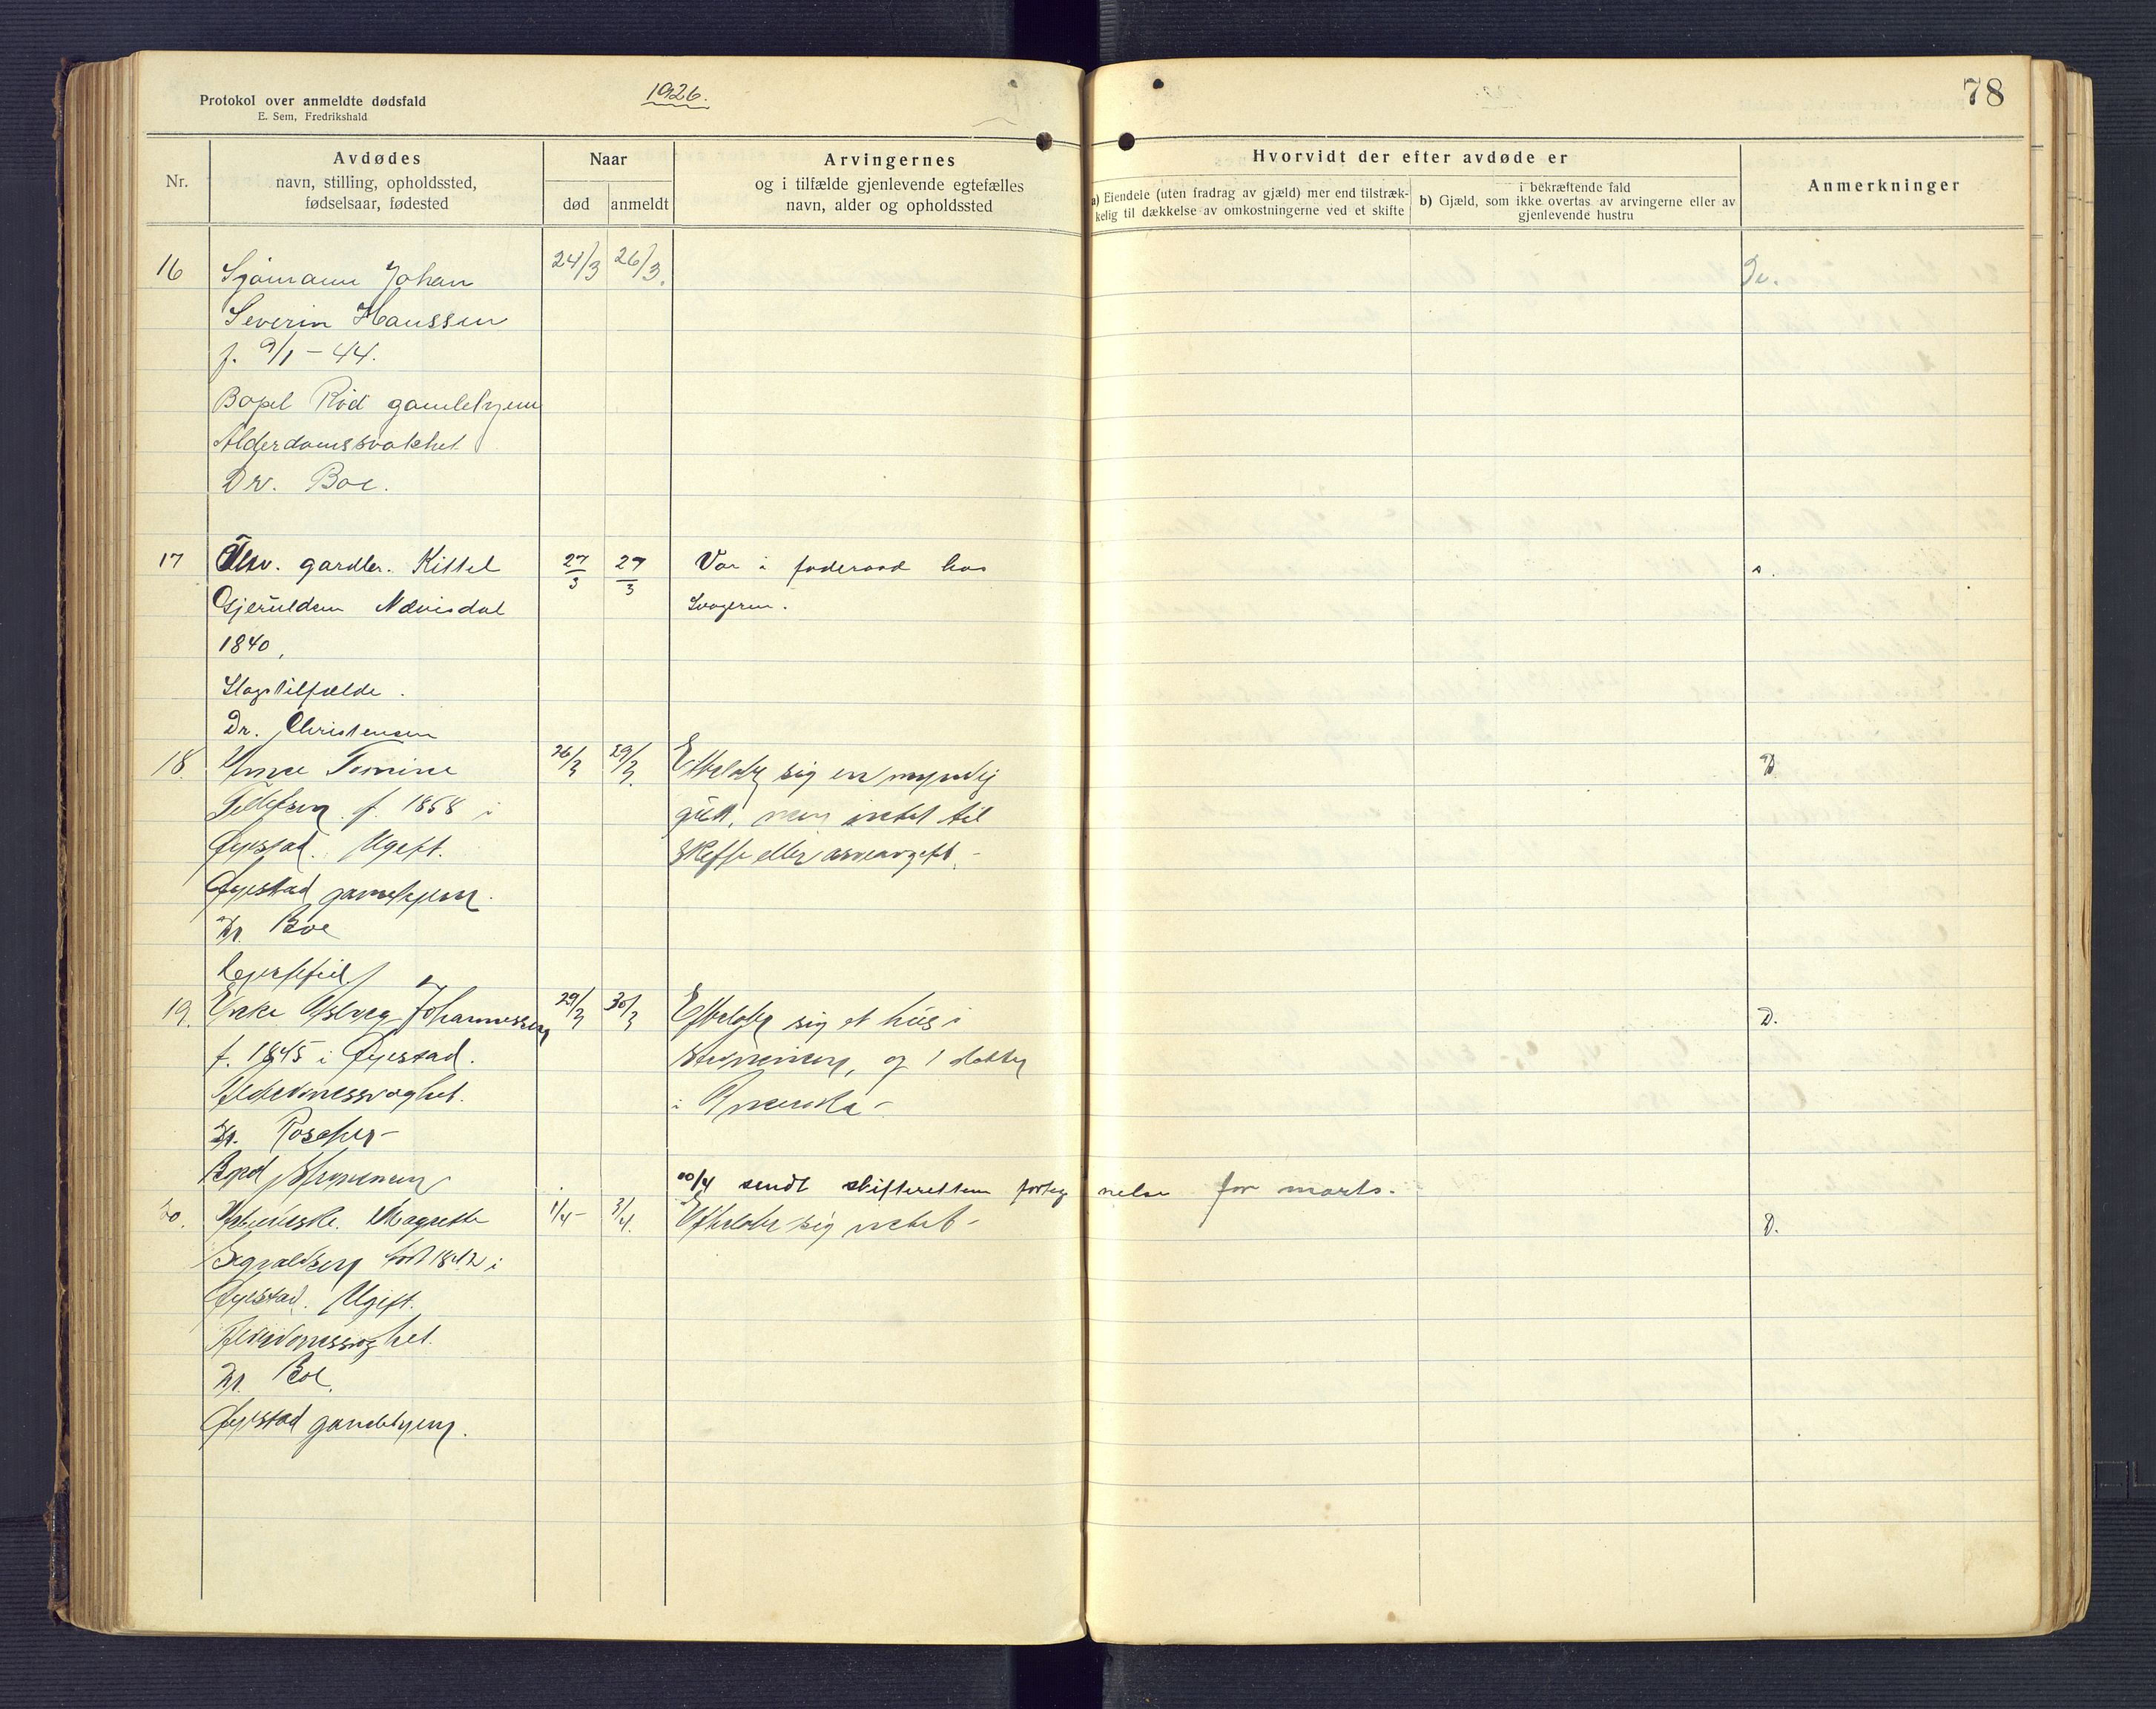 Protokol over anmeldte dødsfald
E. Sem, Fredrikshald
1926.
78
Nr.
Avdødes
navn, stilling, opholdssted,
fødselsaar, fødested
Naar
død
anmeldt
Arvingernes
og i tilfælde gjenlevende egtefælles
navn, alder og opholdssted
Hvorvidt der efter avdøde er
a) Eiendele (uten fradrag av gjæld) mer end tilstræk-
kelig til dækkelse av omkostningerne ved et skifte
i bekræftende fald
b) Gjæld, som ikke overtas av arvingerne eller av
gjenlevende hustru
Anmerkninger
16
Sjømann Johan
24/3
26/3.
Severin Hanssen
f. 9/1 - 44.
Bopel Rød gamlehjem
Alderdomssvakhet
Dr. Boe.
17
gardbr. Kittel
27/3
27/3
Var i foderaad hos
Gjeruldsen Nævisdal
svogeren.
1840,
Slagtilfælde.
Dr. Christensen
18.
Tomine
26/3
29/3.
Efterlod sig en myndig
D.
Tellefsen f. 1858 i
gut, men intet til
Øyestad. Ugift.
skifte eller arveavgift.-
Øyestad gamlehjem.
Dr. Boe
Hjertefeil
19.
Enke Johannessen
29/3
30/3
Efterlater sig et hus i
D.
f. 1845 i Øyestad.
og 1 datter
Alderdomssvaghet.
i Amerika-
Dr. Roscher-
Bopel
10/4 sendt skifteretten forteg nelse for marts.
20.
Magrethe
1/4-
3/4.
Efterlater sig intet-
D.
født 1842 i
Øyestad. Ugift.
Alderdomssvaghet.
Dr. Boe.
Øyestad gamlehjem.